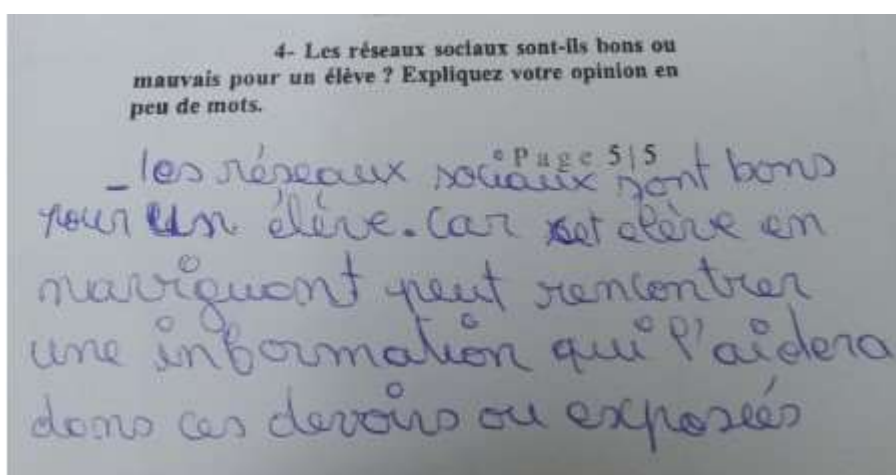 4- Les réseaux sociaux sont-ils bons ou
mauvais pour un élève ? Expliquez votre opinion en
peu de mots.
Page 5|5
_ les réseaux sociaux sont bons
pour un élève. Car cet elève en
naviguant peut rencontrer
une information qui l'aidera
dans ces devoirs ou exposéés